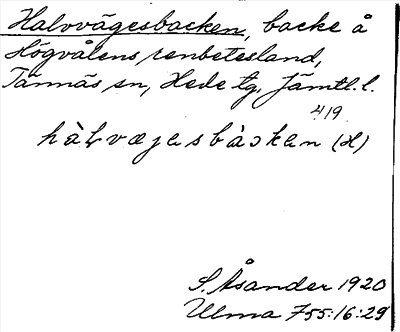 Halvvägesbacken, backe å
Högvålens renbetesland,
Tännäs sn, Hede tg, Jämtl. l.
419
hàlvæjesbàcken (H)
S. Åsander 1920
Ulma 755:16:29